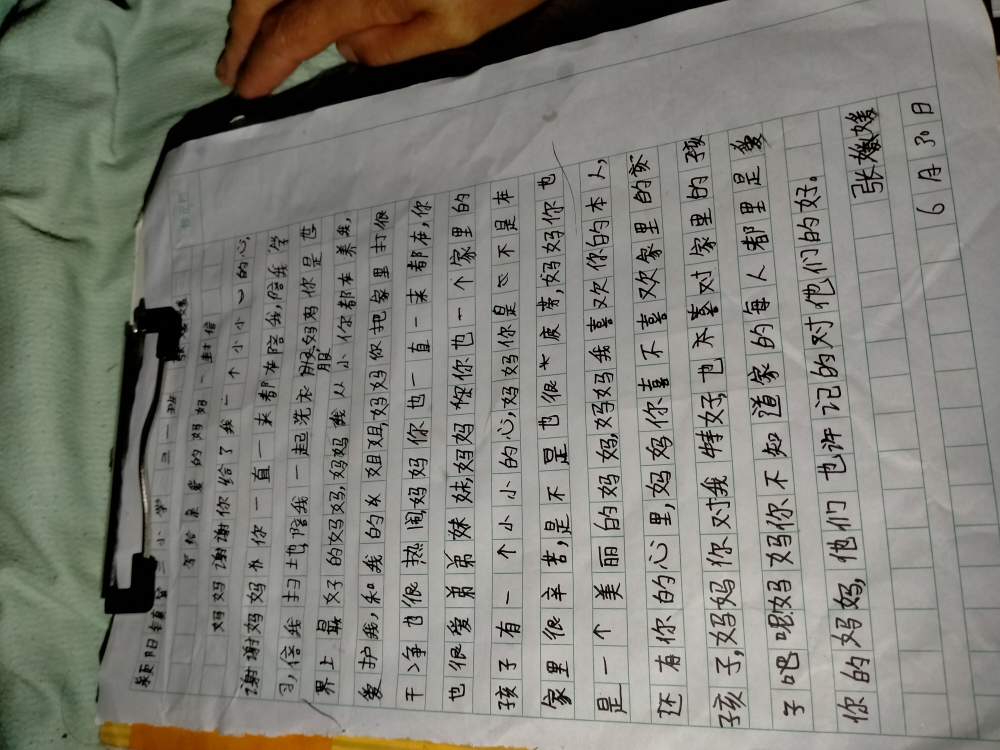 颍阳镇第二小学 三一班
写给亲爱的妈妈一封信
妈妈谢谢你给了我一个小小的心,
谢谢妈妈 你一直一来都在陪我,陪我学
习,信我扫地,陪我一起洗衣服妈妈你是世
界上最好的妈妈,妈妈我从小你都在养我,
爱护我,和我的 姐姐,妈妈你把家里扫很
干净也很热闹妈妈你也一直一来都在,你
也很爱弟弟妹妹,妈妈 你也一个家里的
孩子有一个小小的心,妈妈你是 不是在
家里很辛苦,是不是也很 疲劳,妈妈你也
是一个美丽的妈妈,妈妈我喜欢你的本人,
还有你的心里,妈妈你喜不喜欢家里的
孩子,妈妈你对我特好,也 对家里的孩
子吧 妈妈你不知道家的每人都里是爱
你的妈妈,他们也许记的对他们的好。
张媛媛
6月30日